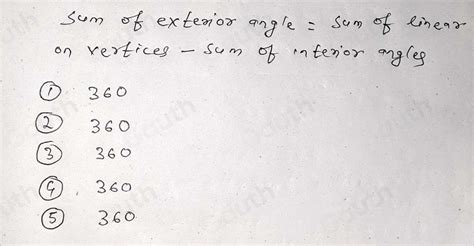 Sum of exterior angle = Sum of linear
on vertices - Sum of interior angles
① 360
② 360
③ 360
④ 360
⑤ 360